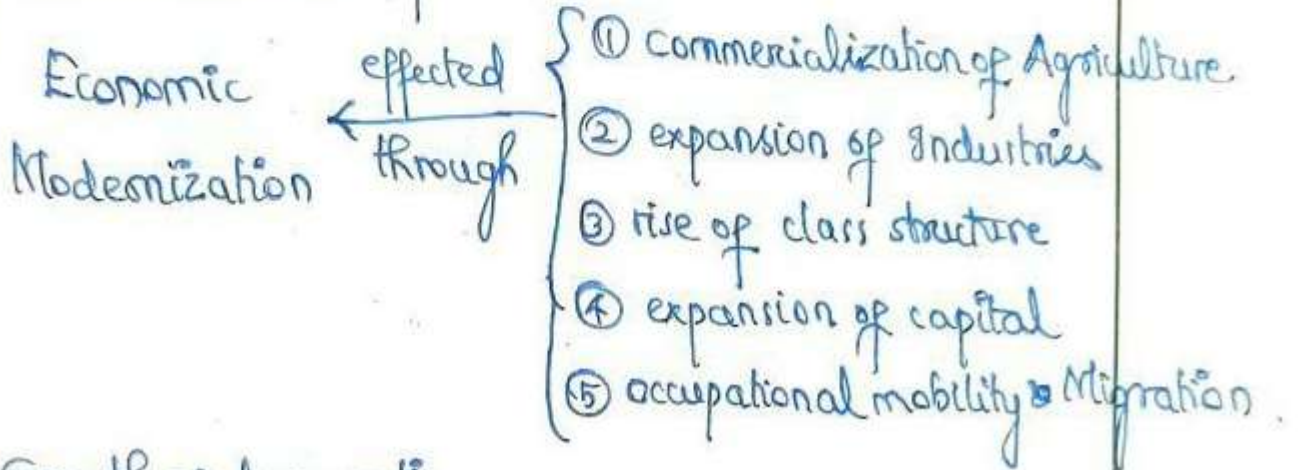 Economic
Modernization
effected
through
① commercialization of Agriculture.
② expansion of Industries
③ rise of class structure
④ expansion of capital
⑤ occupational mobility & Migration.